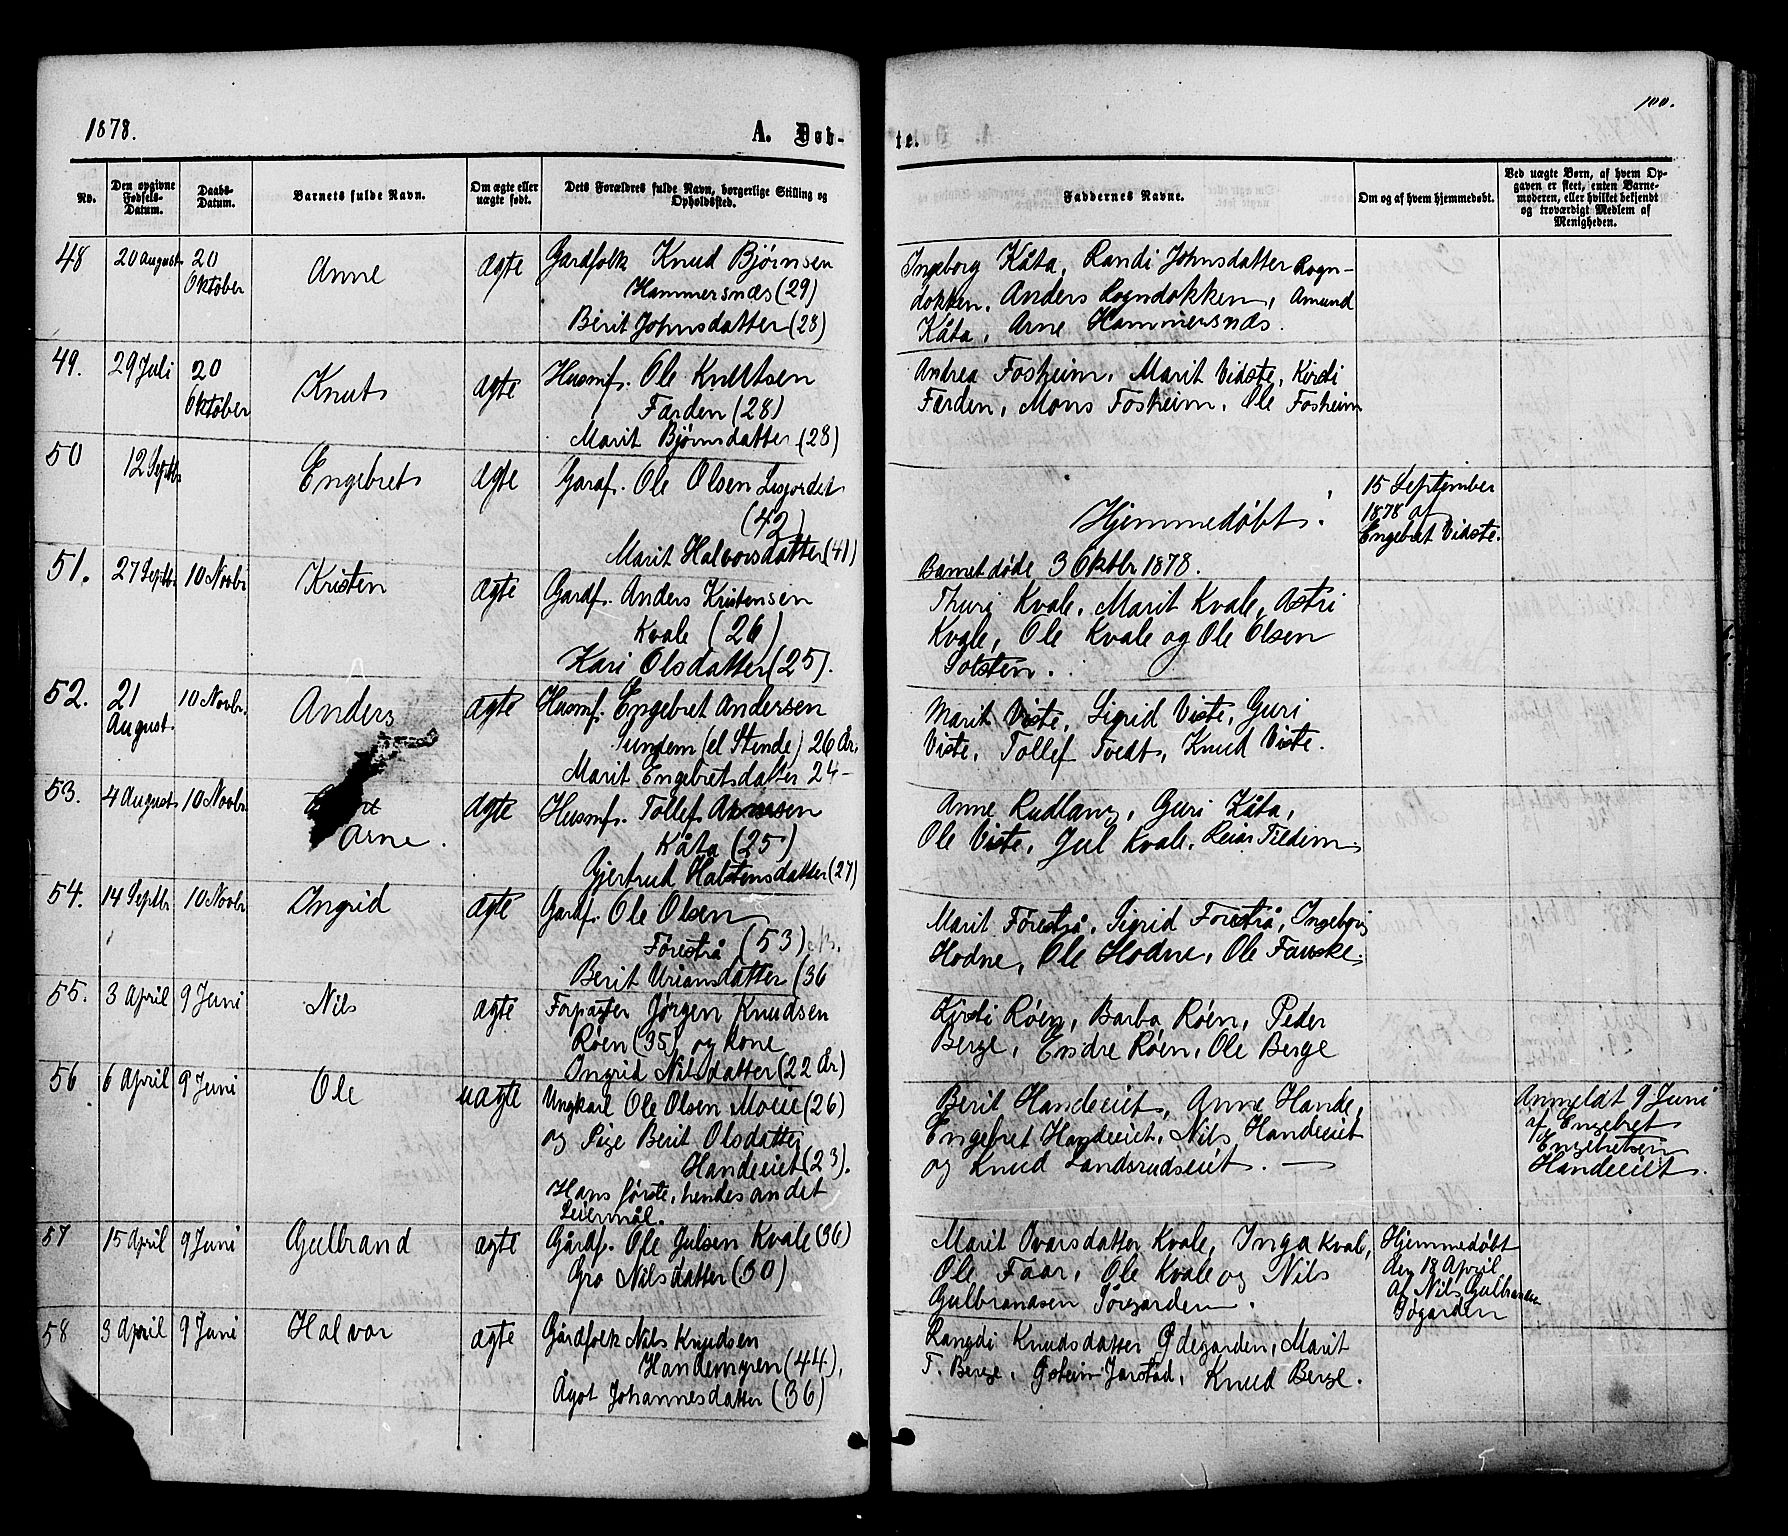 1878.
A. Døb-
te.
100.
Nr.
Den opgivne
Fødsels-
Datum.
Daabs-
Datum.
Barnets fulde Navn.
Om ægte eller
uægte født.
Dets Forældres fulde Navn, borgerlige Stilling og
Opholdssted.
Faddernes Navne.
Om og af hvem hjemmedøbt.
Ved uægte Børn, af hvem Op-
gaven er skeet, enten Barne-
moderen, eller hvilket bekjendt
og troværdigt Medlem af
Menigheden.
48
20 August
20
Oktober
Anne
Ægte
Gardfolk Knud Bjørnsen
Hammersnæs (29)
Berit Johnsdatter (28)
Ingeborg Kåta, Randi Johnsdatter Rogn-
dokken, Anders Rogndokken, Amund
Kåta, Arne Hammersnæs.
49.
29 Juli
20
Oktober
Knut
Ægte
Husmf. Ole Knutsen
Færden (28)
Marit Bjørnsdatter (28)
Andrea Fosheim, Marit Vidste, Kirsti
Færden, Mons Fosheim, Ole Fosheim
50
12 Septbr
Engebret
Ægte
Gardf. Ole Olsen
(42)
Marit Halvorsdatter (41)
Hjemmedøbt.
Barnet døde 3 Oktbr 1878.
15 September
1878 af
Engebret Vidste.
51.
27 Septbr
10 Novbr
Kristen
Ægte
Gardf. Anders Kristensen
Kvale (26)
Kari Olsdatter (25).
Thuri Kvale, Marit Kvale, Astri
Kvale, Ole Kvale og Ole Olsen
Tolstein.
52.
21
August.
10 Novbr.
Anders
Ægte
Husmf. Engebret Andersen
Sundem (el Stende) 26 År
Marit Engebretsdatter 24 -
Marit Viste, Sigrid Viste, Guri
Viste, Tollef Tvedt, Knud Viste.
53.
4 August
10 Novbr
Arne.
Ægte
Husmf. Tollef Arnesen
Kåta (25)
Gjertrud Halstensdatter (27)
Anne Rudlang, Guri Kåta,
Ole Viste, Jul Kvale, Reiar Tildeim
54.
14 Septbr
10 Novbr
Ingrid
Ægte
Gardf. Ole Olsen
Førestrå (53)
Berit Uriansdatter (36
Marit Førestrå, Sigrid Forestrå, Ingeborg
Hodne, Ole Hodne, Ole Fauske.
55.
3 April
9 Juni
Nils
Ægte
Forpagter Jørgen Knudsen
Røen (35) og kone
Ingrid Nilsdatter (22 År)
Kirsti Røen, Barbo Røen, Peder
Berge, Endre Røen, Ole Berge
56
6 April
9 Juni
Ole
uægte
Ungkarl Ole Olsen Moeie (26)
og Pige Berit Olsdatter
Handeeiet (23).
Hans første, hendes andet
Leiermål.
Berit Handeeiet, Anne Hande,
Engebret Handeeiet, Nils Handeeiet
og Knud Landsrudseiet. —
Anmeldt 9 Juni
af Engebret
Engebretsen
Handeeiet.
57
15 April
9 Juni
Gulbrand
ægte
Gårdf. Ole Julsen Kvale (36)
Gro Nilsdatter (30)
Marit Ivarsdatter Kvale, Inga Kvale,
Ole Faar, Ole Kvale og Nils
Gulbrandsen Søregarden.
Hjemmedøbt
den 18 April
af Nils Gulbrandsen
Søgarden
58
3 April
9 Juni
Halvor
ægte
Gårdfolk Nils Knudsen
Handemyren (44),
Ågot Johannesdatter (36)
Rangdi Knudsdatter Ødegarden, Marit
T. Berge, Østein Jarstad, Knud Berge.